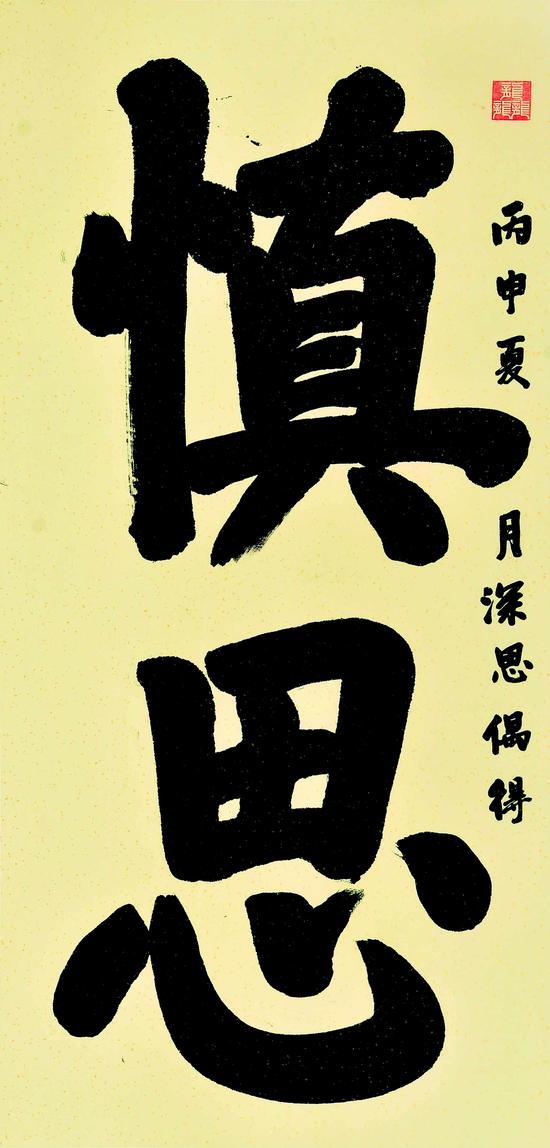 慎思
丙申夏月深思偶得